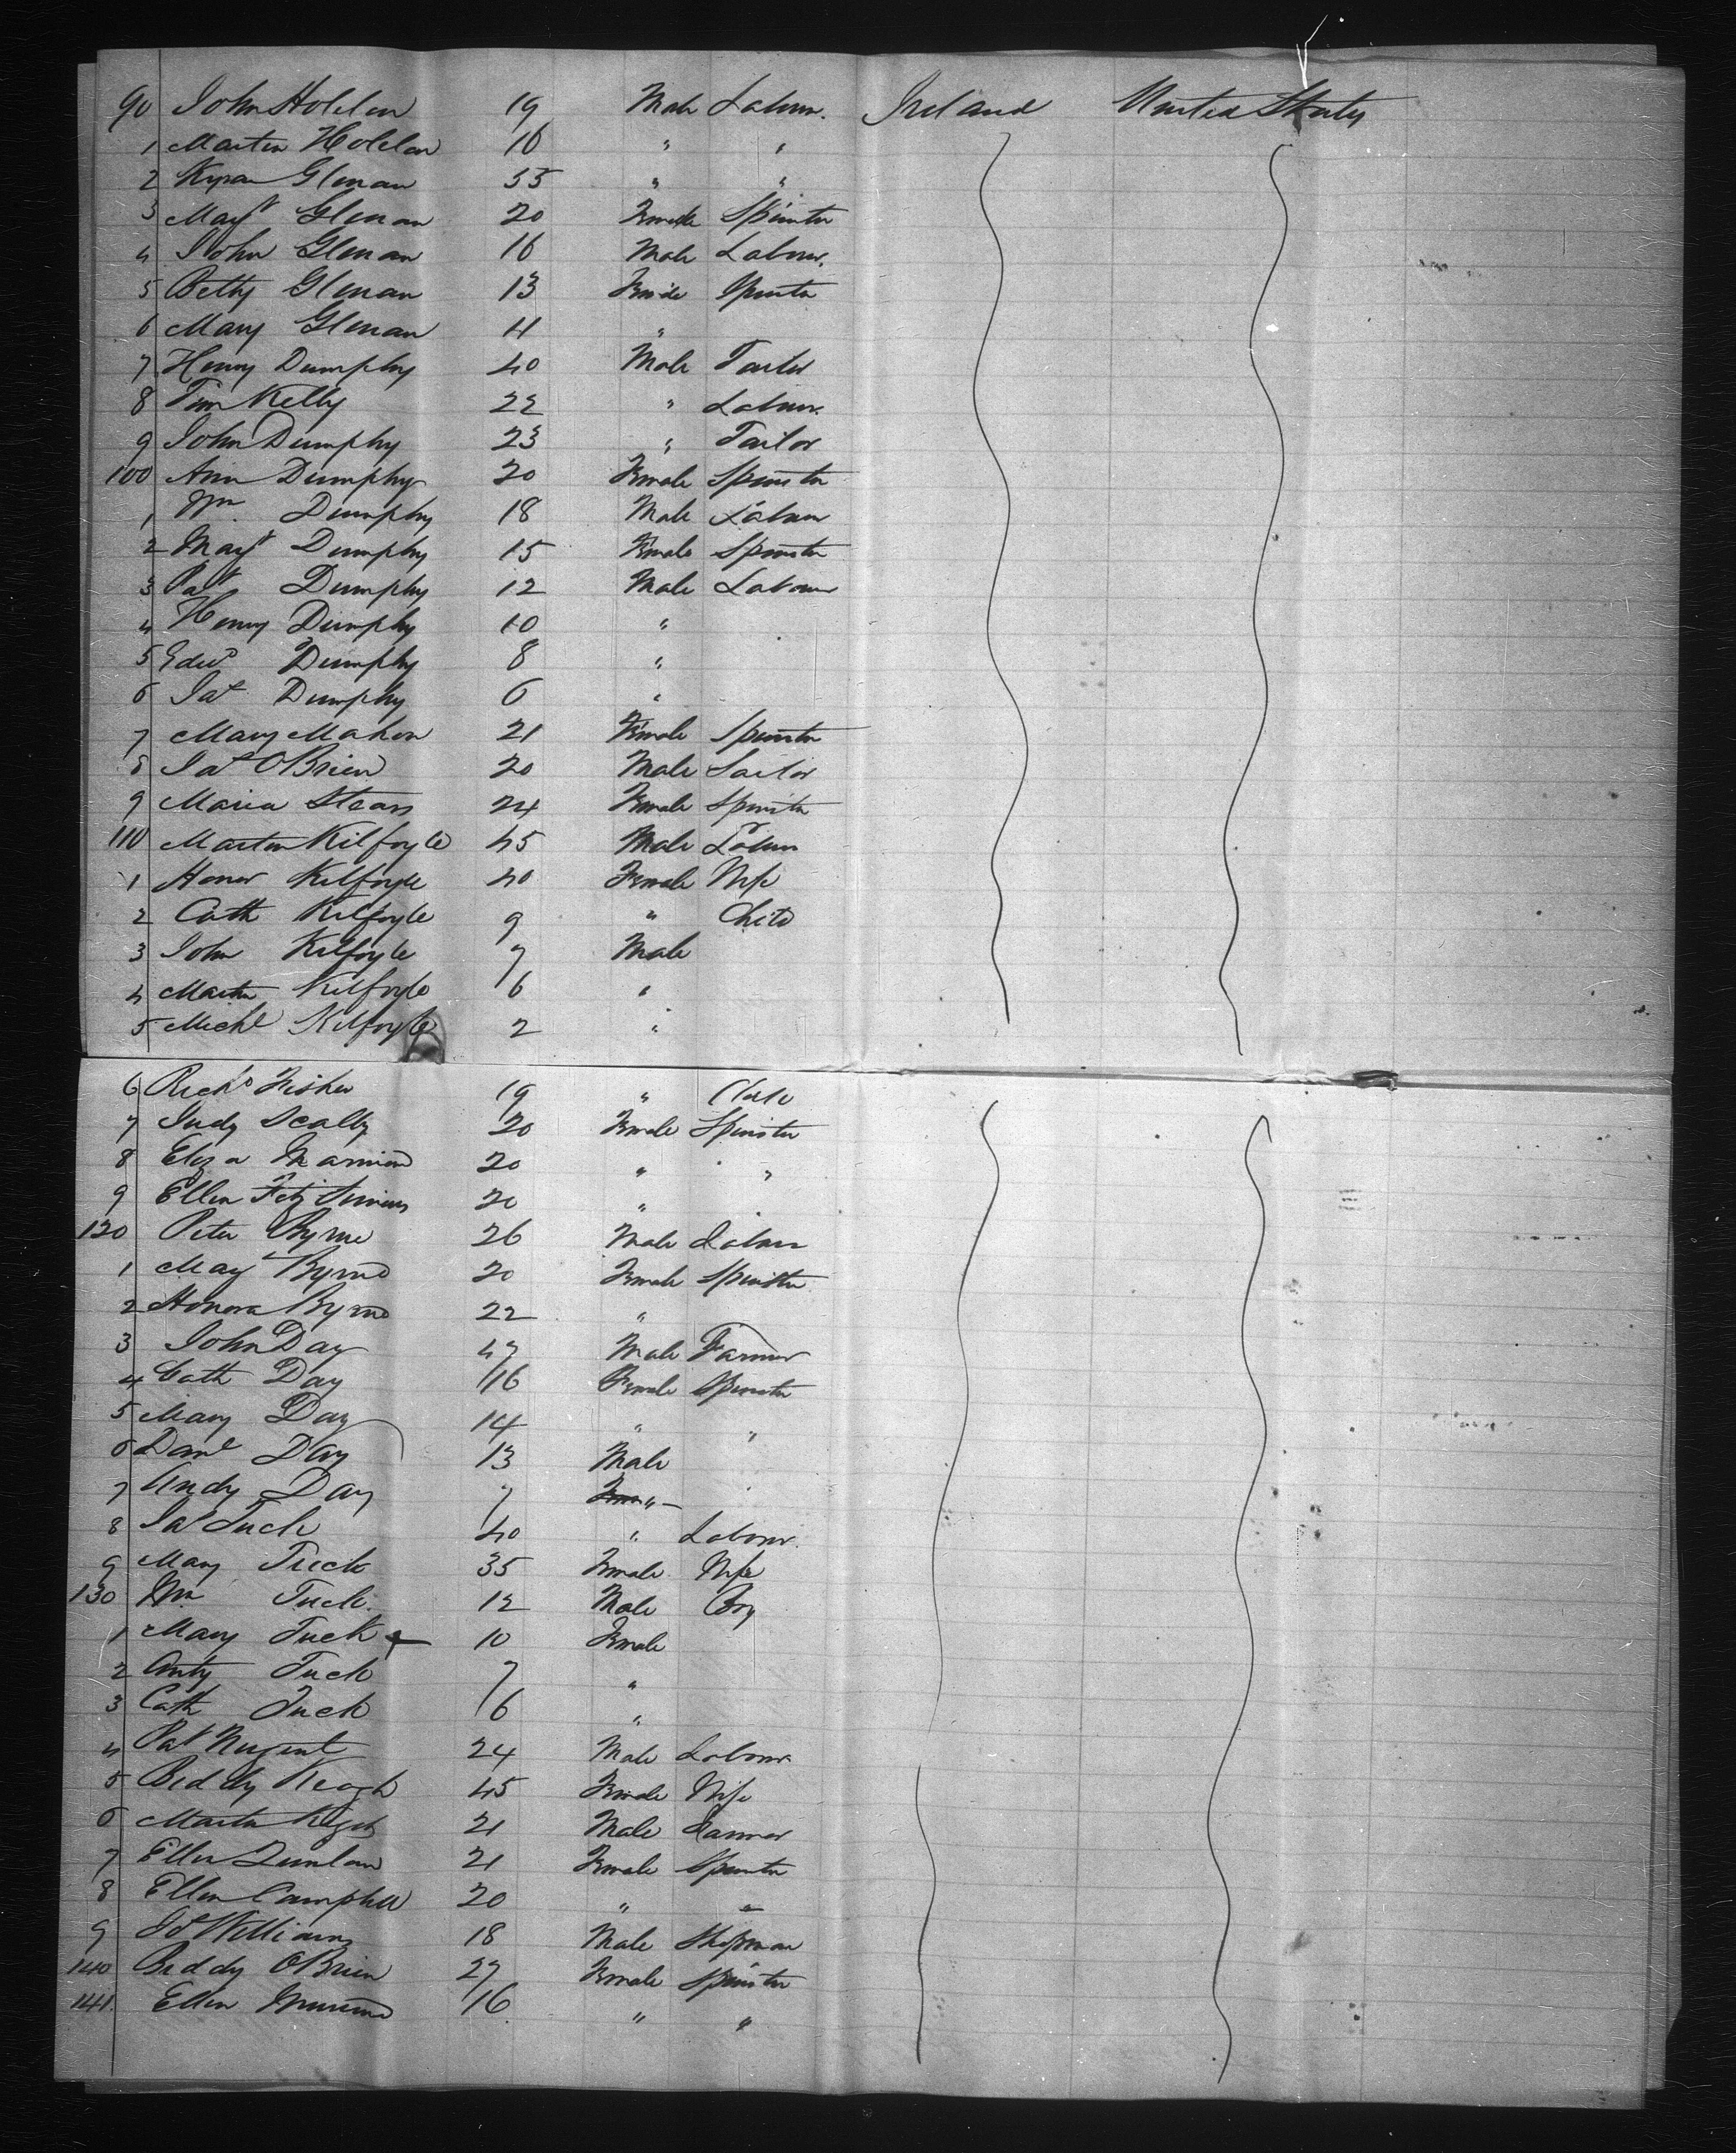 90 John Holden 19 Male Labour. Ireland United States
1 Martin Holden 16 " "
2 Kyran Glenan 55 " "
3 Mart Glenan 20 Female Spinster
4 John Glenan 16 Male Labour.
5 Betty Glenan 13 Female Spinster
6 Mary Glenan 11 "
7 Henry Dumphy 40 Male Tailor
8 Tim Kelly 22 " Labour.
9 John Dumphy 23 " Tailor
100 Ann Dumphy 20 Female Spinster
1 Wm Dumphy 18 Male Labour
2 Mart Dumphy 15 Female Spinster
3 Pat Dumphy 12 Male Labour
4 Henry Dumphy 10 "
5 Edwd Dumphy 8 "
6 Jas Dumphy 6 "
7 Mary Mahon 21 Female Spinster
8 Jas OBrien 20 Male Sailor
9 Maria 24 Female Spinster
110 Martin Kilfoyle 45 Male Labour
1 Honor Kilfoyle 40 Female Wife
2 Cath Kilfoyle 9 " Child
3 John Kilfoyle 7 Male
4 Martin Kilfoyle 6 "
5 Michl Kilfoyle 2 "
6 Richd Fisher 19 " Clerk
7 Judy Scally 20 Female Spinster
8 Eliza 20 " "
9 Ellen Fitz Simins 20 " "
120 Peter Byrne 26 Male Labour
1 Mart Byrne 20 Female Spinster
2 Honora Byrne 22 "
3 John Day 47 Male Farmer
4 Cath Day 16 Female Spinster
5 Mary Day 14 " "
6 Danl Day 13 Male
7 Andy Day 7 "
8 Jas Tuck 40 " Labour.
9 Mary Tuck 35 Female Wife
130 Wm Tuck 12 Male Boy
1 Mary Tuck 10 Female
2 Anty Tuck 7 "
3 Cath Tuck 6 "
4 Pat Nugent 24 Male Labour
5 Biddy Keogh 45 Female Wife
6 Martin Keogh 21 Male Farmer
7 Ellen 21 Female Spinster
8 Ellen Campbell 20 " "
9 Jas Williams 18 Male Shopman
140 Biddy OBrien 27 Female Spinster
141. Ellen 16 " "